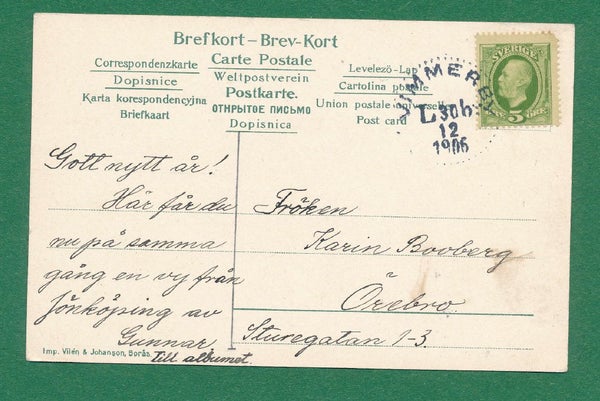 Brefkort – Brev-Kort
Correspondenzkarte
Carte Postale
Levelezö-Lap
Dopisnice
Weltpostverein
Cartolina postale
Karta korespondencyjna
Postkarte.
Union postale universelle
Briefkaart
ОТКРЫТОЕ ПИСЬМО
Post card
Dopisnica
SVERIGE
5
VIMMERBY
L 30b
12
1906
Gott nytt år!
Här får du
nu på samma
gång en vy från
Jönköping av
Gunnar
Till albumet.
Fröken
Karin Booberg
Örebro
Sturegatan 1-3.
Imp. Vilén & Johanson, Borås.